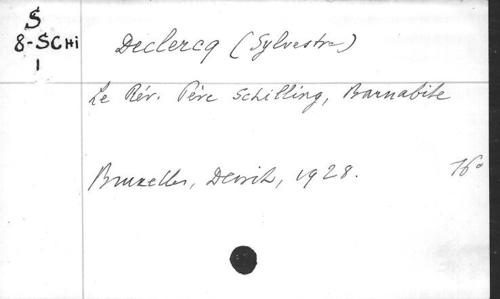 S
8-SCHi
1
Declercq (Sylvestre)
Le Rév. Père Schilling, Barnabite
Bruxelles, Dewit, 1928.
16°